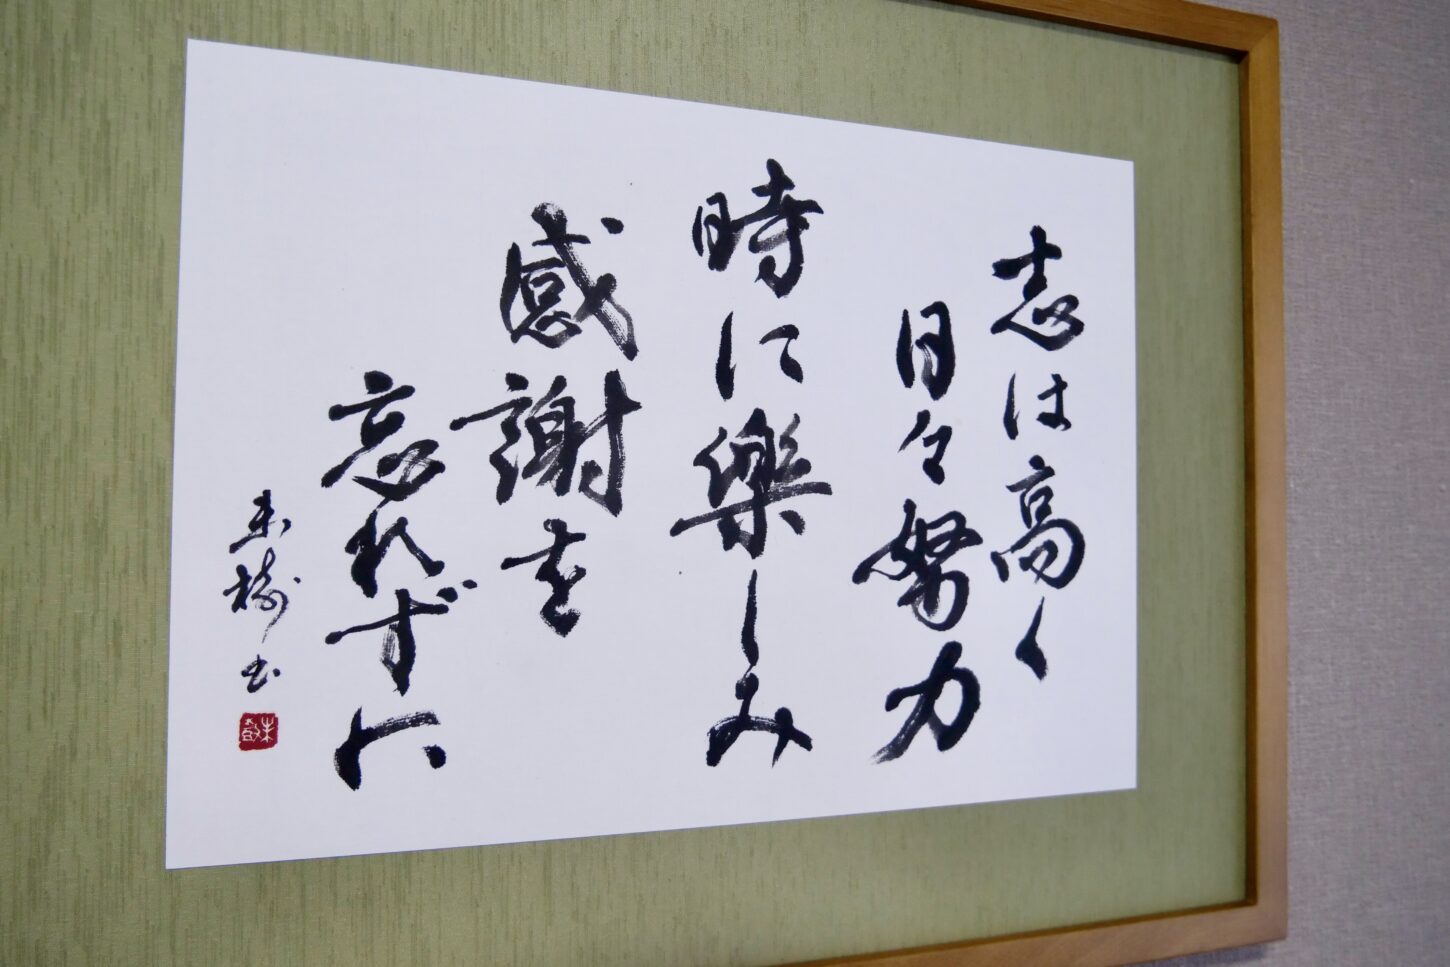 志は高く
日々努力
時に楽しみ
感謝を
忘れずに